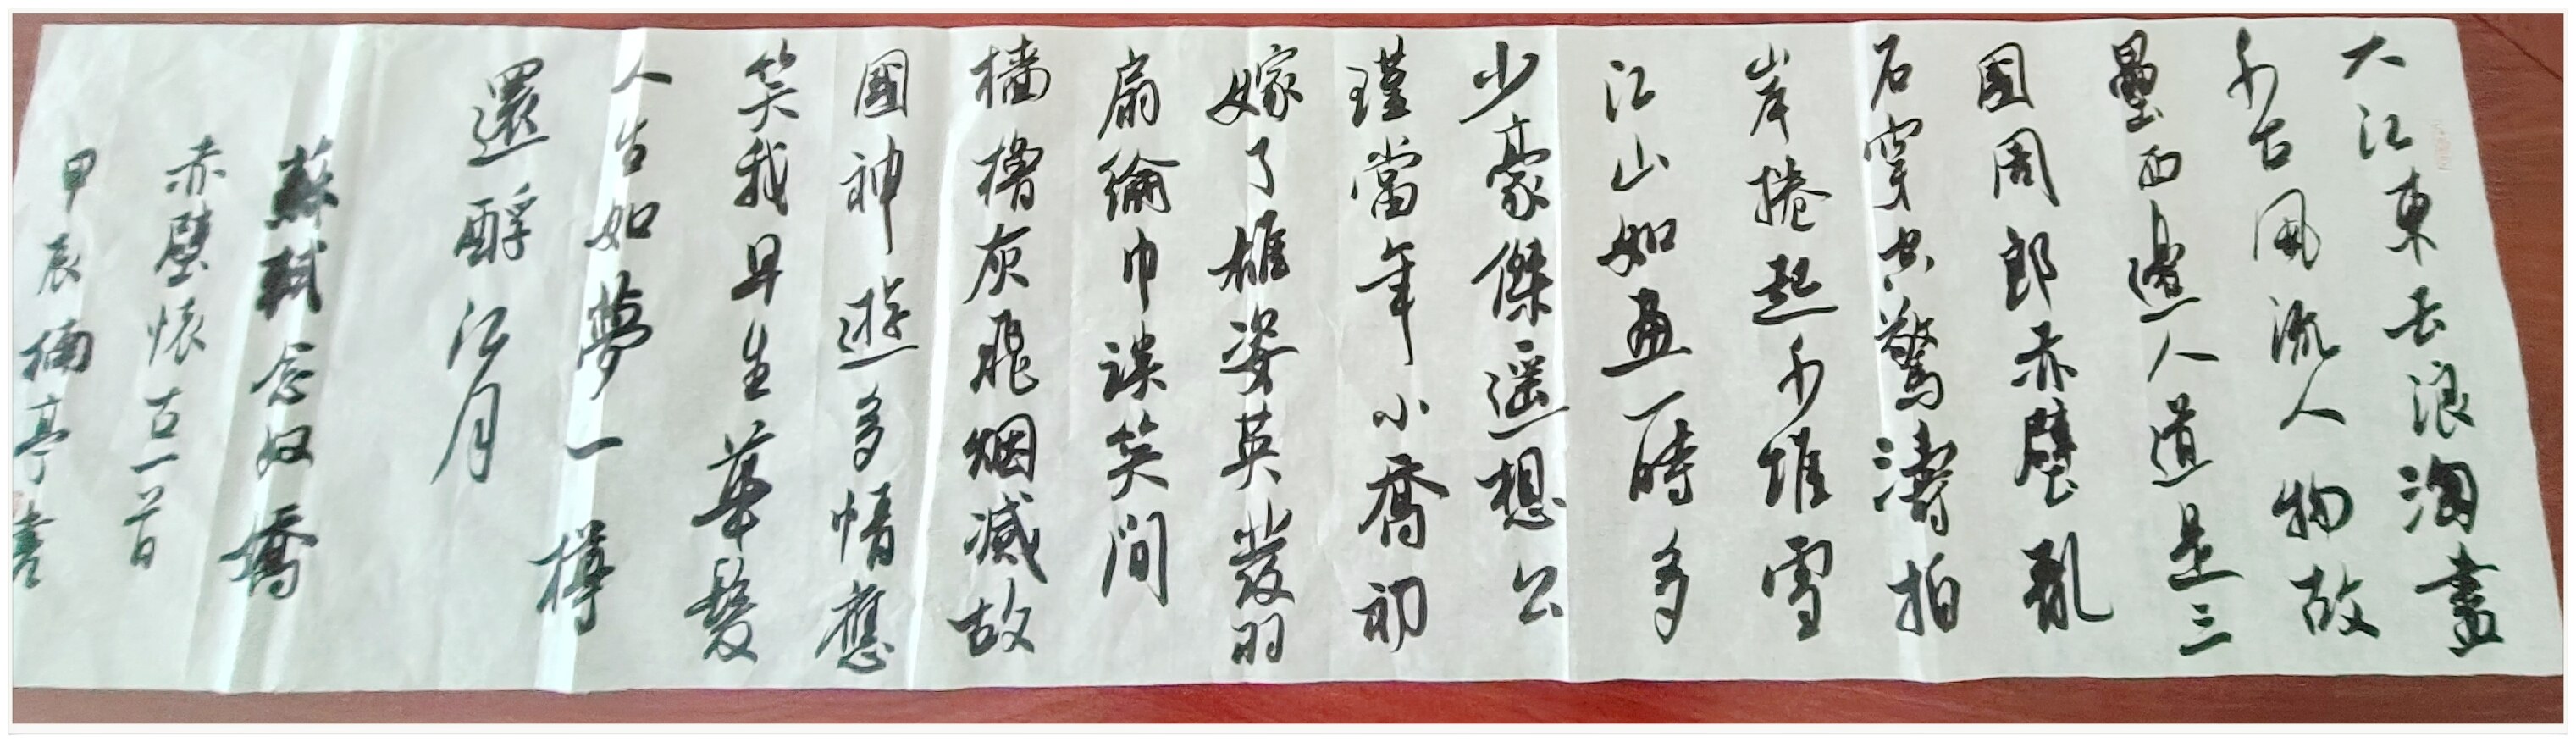 大江東去浪淘盡
千古風流人物故
壘西邊人道是三
國周郎赤壁亂
石穿空驚濤拍
岸捲起千堆雪
江山如畫一時多
少豪傑遥想公
瑾當年小喬初
嫁了雄姿英發羽
扇綸巾談笑間
檣櫓灰飛烟滅故
國神遊多情應
笑我早生華髮
人生如夢一樽
還酹江月
蘇軾念奴嬌
赤壁懷古一首
甲辰 亭書